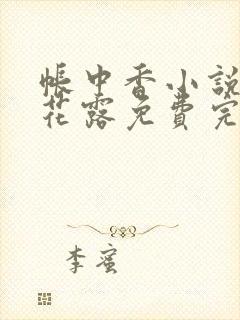 帳中香小說
花露免費完
李蜜